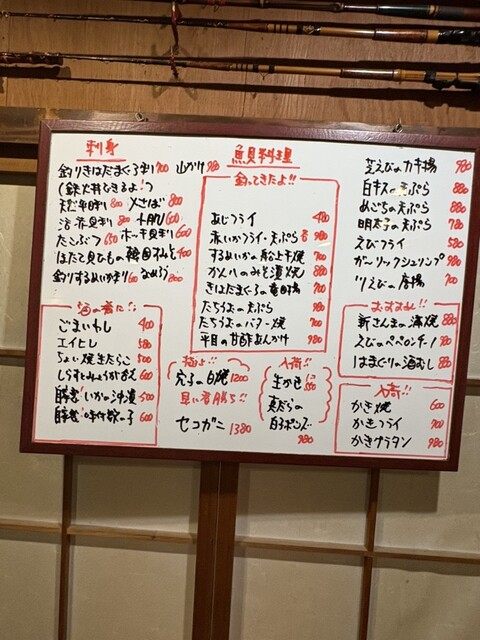 刺身
釣りきはだまぐろ刺り 700 山かけ 980
(鉄火丼できるよ！)
天然平目刺り 800 〆さば 800
活〆真刺り 600
たこぶつ 650 ホッキ貝刺り 600
ほたて貝ひもの韓国のみそ 400
釣りするめいか刺り なめろう
酒の肴に!!
ごまいわし 400
エイヒレ 580
ちょい焼きたらこ 500
しらすとみょうが合え 600
自家製いかの沖漬 500
自家製味付数の子 600
魚貝料理
釣ってきたよ!!
あじフライ 480
赤いかフライ・天ぷら各 980
するめいかの船上干焼 700
かんパのみそ漬焼 880
きはだまぐろの竜田揚 700
たちうおの天ぷら 980
たちうおのバター焼 700
平目の甘酢あんかけ 980
極上!!
穴子の白焼 1200
早い者勝ち!!
セコガニ 1380
入荷!!
生かき
真だらの
白子ポンズ 980
芝えびのかき揚 980
白キスの天ぷら 880
めごちの天ぷら 880
明太子の天ぷら 780
えびフライ 580
ガーリックシュリンプ 980
川えびの唐揚 700
おすすめ!!
新さんまの蒲焼 880
えびのペペロンチーノ 880
はまぐりの酒むし 880
入荷!!
かき焼 600
かきフライ 700
かきグラタン 980